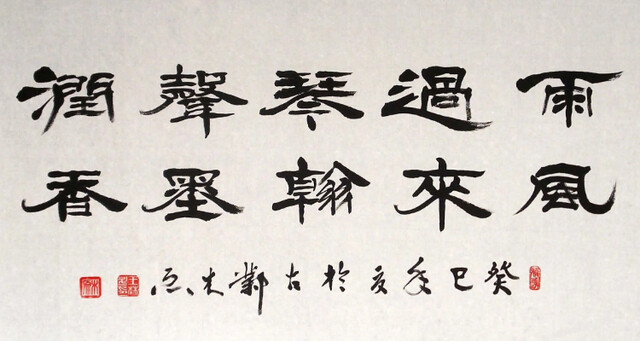 雨過琴聲潤
風來翰墨香
癸巳年夏於古鄴